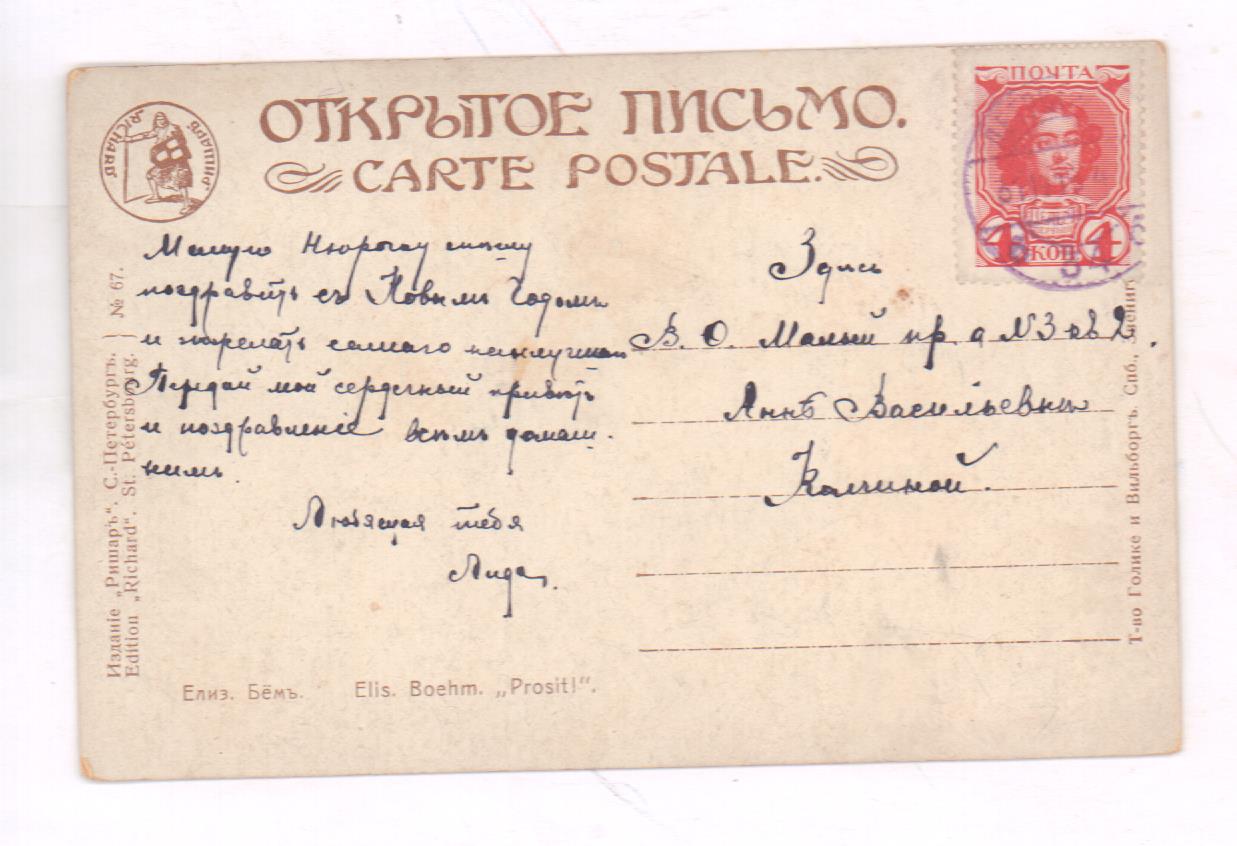 ОТКРЫТОЕ ПИСЬМО.
CARTE POSTALE.
РИШАРЪ. RICHARD.
ПОЧТА
4 КОП 4
Милую Нюрочку спѣшу
поздравить съ Новымъ Годомъ
и пожелать самаго наилучшаго
Передай мой сердечный привѣтъ
и поздравленіе всѣмъ домаш-
нимъ.
Любящая тебя
Лида.
Здѣсь
В. О. Малый пр д N 3 кв 2.
Аннѣ Васильевнѣ
Калиной.
Изданіе „Ришаръ“. С.-Петербургъ.
Edition „Richard“. St. Pétersbourg.
№ 67.
Елиз. Бёмъ. Elis. Boehm. „Prosit!“.
Т-во Голике и Вильборгъ. Спб.,